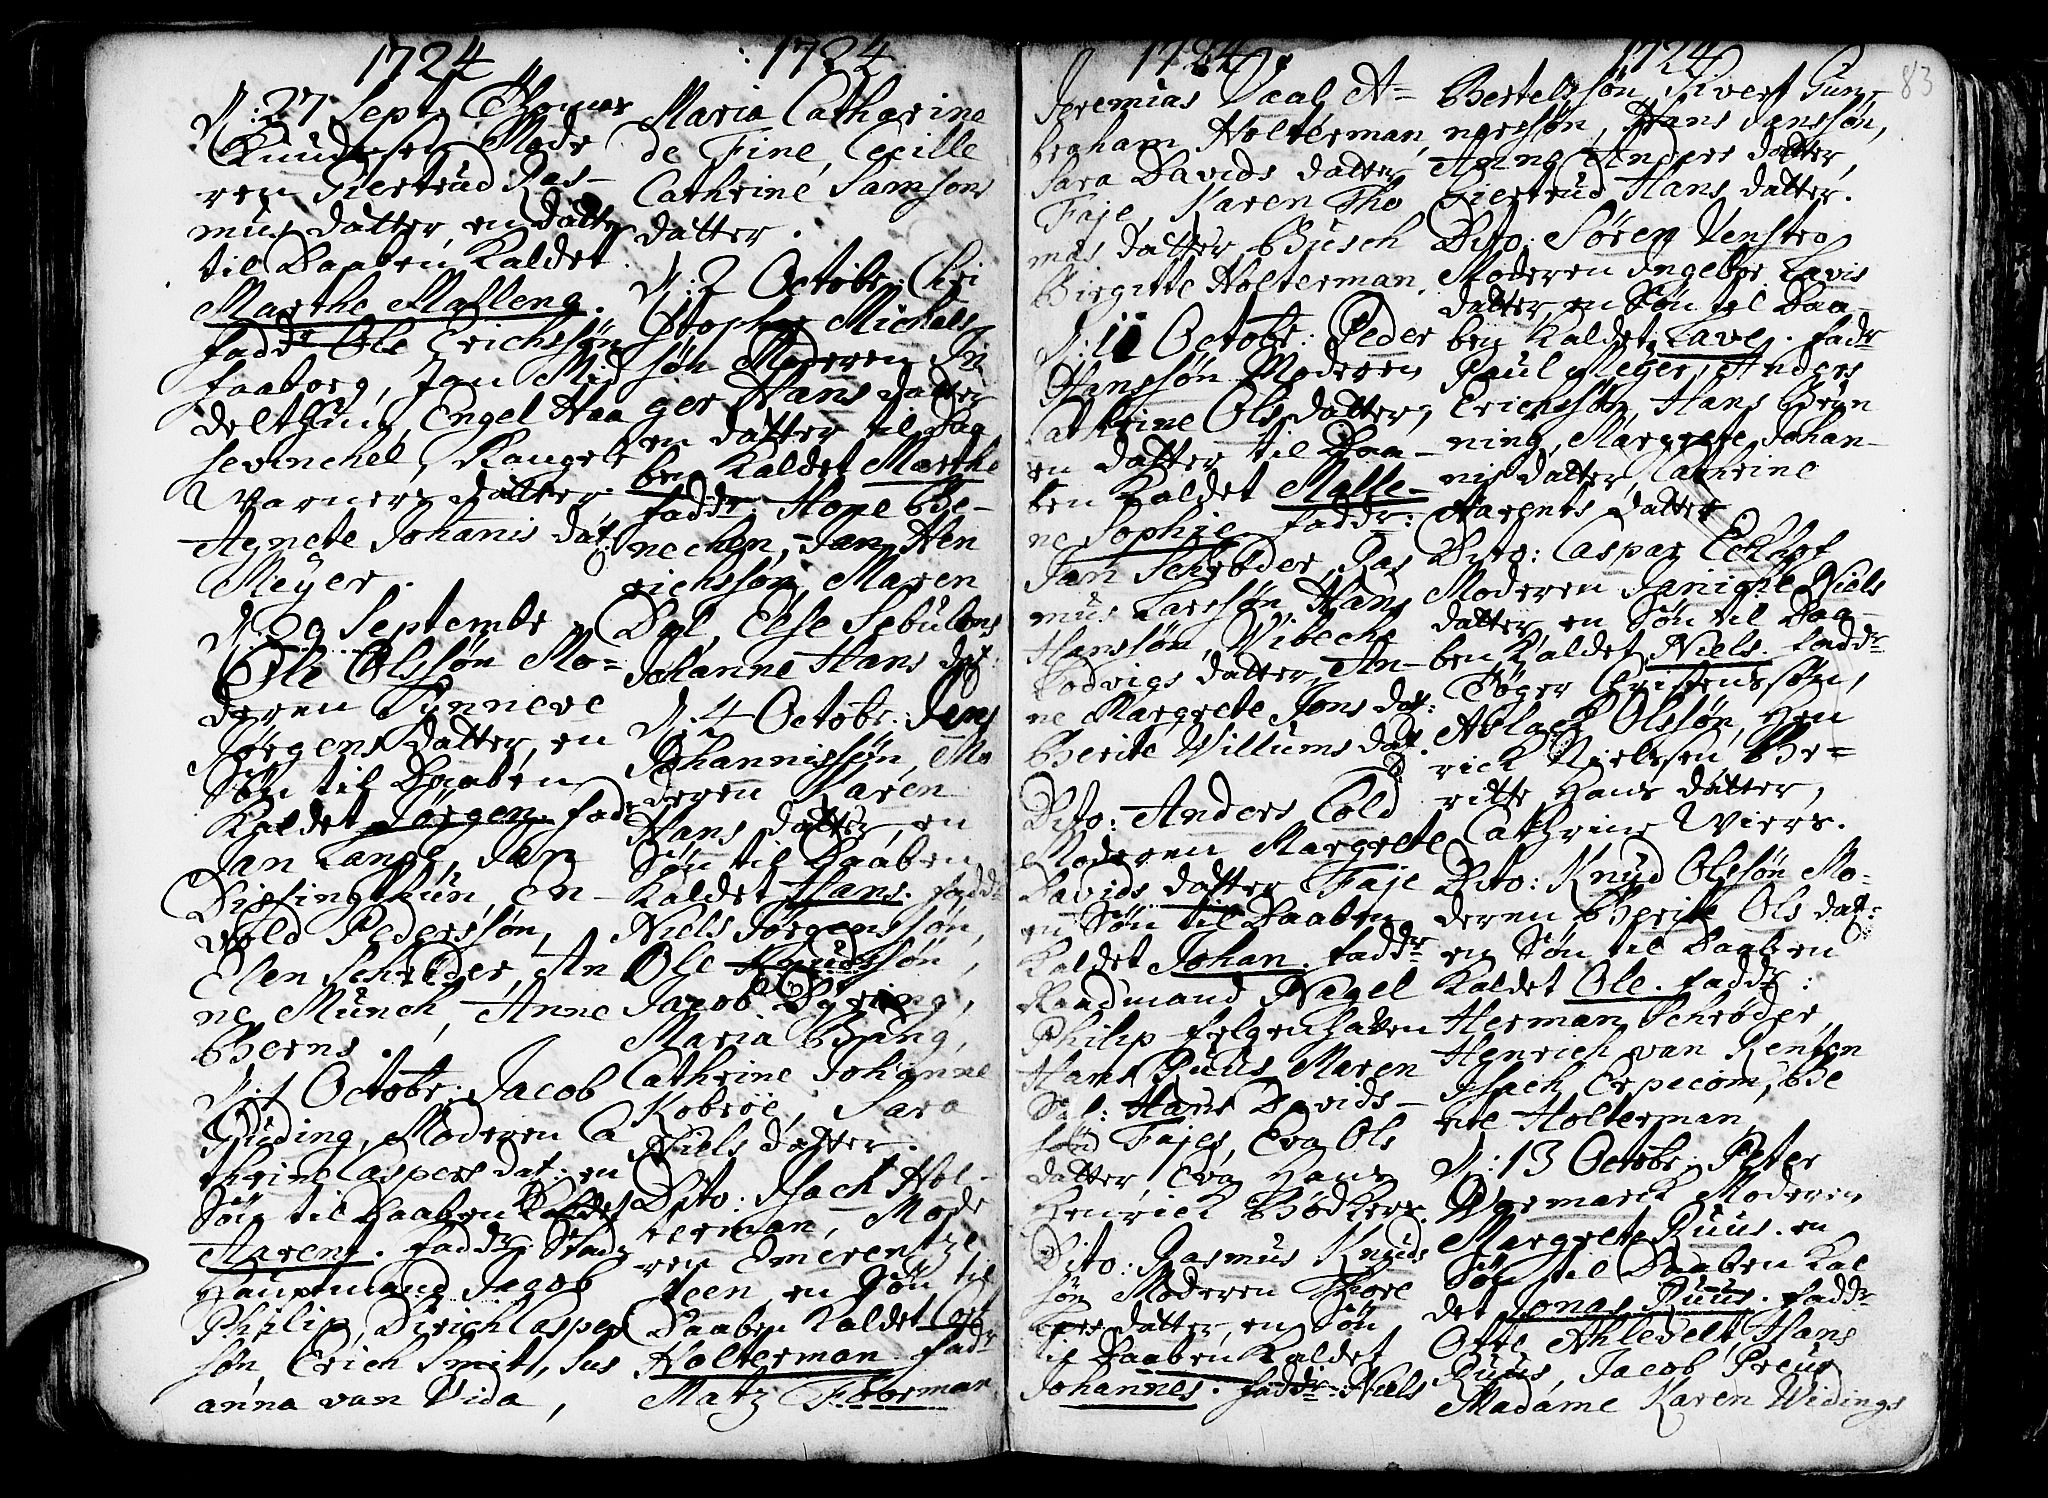 1724
D: 27 Sept. Thomas
Knudssøn Mode
ren Giertrud Ras-
mus datter, en datter
til Daaben Kaldet
Marthe Malleng.
fadd: Ole Erichssøn
faaborg, Jan Mid
delthun, Engel Haa
sevinchel,
Warners datter
Agnete Johanis dat:
Meyer.
D: 29 Septembr
Ole Olssøn Mo-
deren Synneve
Jørgens datter, en
Søn til Daaben
Kaldet Jørgen. fad:
Jan Lange, Jan
Dissingthun, En-
vold Pederssøn,
Elen Schrøder, An
ne Münch, Anne
Berns.
D: 1 Octobr: Jacob
Giiding, Moderen Ca
thrine Caspers dat: en
Søn til Daaben Kaldet
Aarent. fadd: Stadz
Hauptmand Jacob
Philip, Dirich Casper
søn, Erich Smit, Sus
anna van Vida,
1724
Maria Catharine
de Fine, Cecille
Cathrine Samsons
datter.
D: 2 Octobr: Chri
stopher Michels
søn Moderen In
ger Hans datter
en datter til Daa
ben Kaldet Marthe
fadd: Hone Be-
nechen, Jan Hen
richssøn, Maren
Dyl, Else Sebulons
Johanne Hans dat:
D: 4 Octobr: Jens
Johannissøn, Mo
deren Karen
Hans datter, en
Søn til Daaben
Kaldet Hans. fadd:
Niels Jørgenssøn,
Ole Knudssøn,
Jacob Dyring,
Maria Bang,
Cathrine Johanne
Kobroe, Sara
Niels datter.
Dito: Isach Hol-
terman, Mode
ren Emerentze
Steen, en Søn til
Daaben Kaldet
Holterman fadr
Matz Foorman
1724
Jeremias Vaal, A-
braham Holterman,
Sara Davids datter
Faje, Karen Tho
mas datter Busch
Birgitte Holterman.
D: 11 Octobr: Peder
Hanssøn Moderen
Cathrine Ols datter,
en datter til Daa-
ben Kaldet Malle-
ne Sophie faddr:
Jan Schrøder, Ras
mus Larssøn, Hans
Hanssøn, Vibeche
Lodvigs datter, An-
ne Margrete Jons dat:
Berite Willums dat.
Dito: Anders Cold
Moderen Margrete
Davids datter Faje
en Søn til Daaben
Kaldet Johan. faddr
Raadmand Nagel
Philip felgenhauen
Hans Ruus, Maren
Sal: Hans Davids-
søn Fajes, Eva Ols
datter, Eva Hans
Henrick Bødkers.
Dito: Rasmus Knuds
søn Moderen Thore
datter, en Søn
til Daaben Kaldet
Johannes. faddr: Niels
1724 83
Bertelssøn, Sivert Gun-
nerssøn, Hans Janssøn,
Anna Anders datter,
Giertrud Hans datter.
Dito: Søren Venstro
Moderen Ingebor Lavis
datter, en Søn til Daa-
ben Kaldet Lave. fadr
Paul Meyer, Anders
Erichssøn, Hans Brun
ning, Margrete Johan-
nis datter, Cathrine
Aarents datter
Dito: Caspar Eckhof
Moderen Janiche Niels
datter, en Søn til Daa-
ben Kaldet Niels. faddr
Tøger Christenssøn,
Ablach Olssøn, Hen
rick Nielssen, Be-
ritte Hans datter,
Cathrine Wiers.
Dito: Knud Olssøn Mo-
deren Berite Ols dat:
en Søn til Daaben
Kaldet Ole. faddr:
Herman Schrøder,
Henrich van Renten
Isach Erpecom, Be
rite Holterman
D: 13 Octobr: Peter
Wormarck Moderen
Margrete Ruus. en
Søn til Daaben Kal
det Jonas Ruus. faddr
Otte Ahlevelt, Hans
Ruus, Jacob Preus
Madame Karen Widings